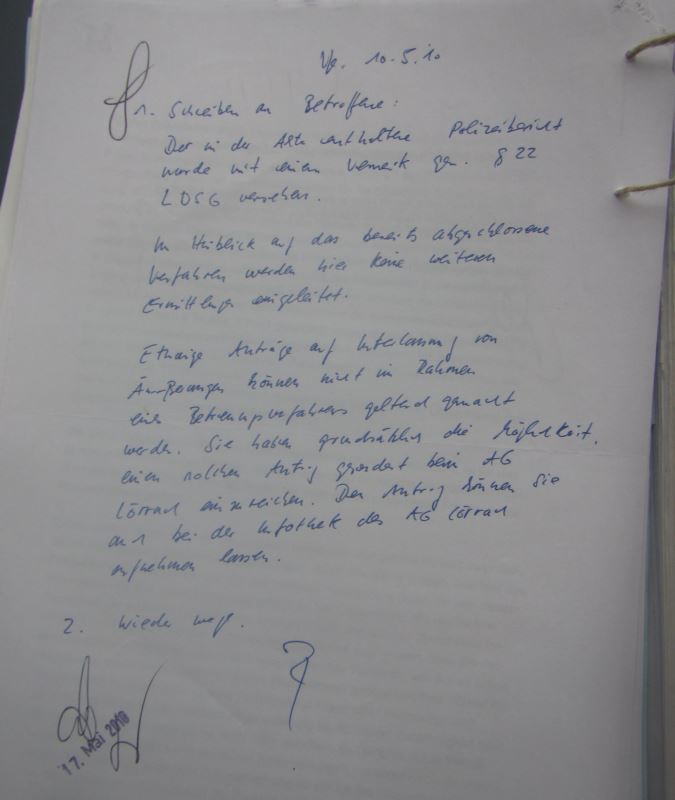 Vfg. 10.5.10
1. Schreiben an Betroffene:
Der in der Akte enthaltene Polizeibericht
wurde mit einem Vermerk gem. § 22
LDSG versehen.
Im Hinblick auf das bereits abgeschlossene
Verfahren werden hier keine weiteren
Ermittlungen eingeleitet.
Etwaige Anträge auf Unterlassung von
Äußerungen können nicht im Rahmen
eines Betreuungsverfahrens geltend gemacht
werden. Sie haben grundsätzlich die Möglichkeit,
einen solchen Antrag gesondert beim AG
Lörrach einzureichen. Den Antrag können Sie
auch bei der Infothek des AG Lörrach
aufnehmen lassen.
2. Wieder
17. Mai 2010